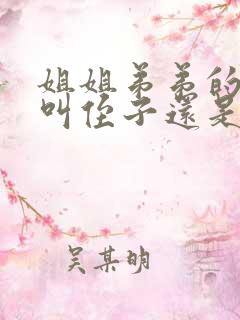 姐姐弟弟的
叫侄子還是
吴某明